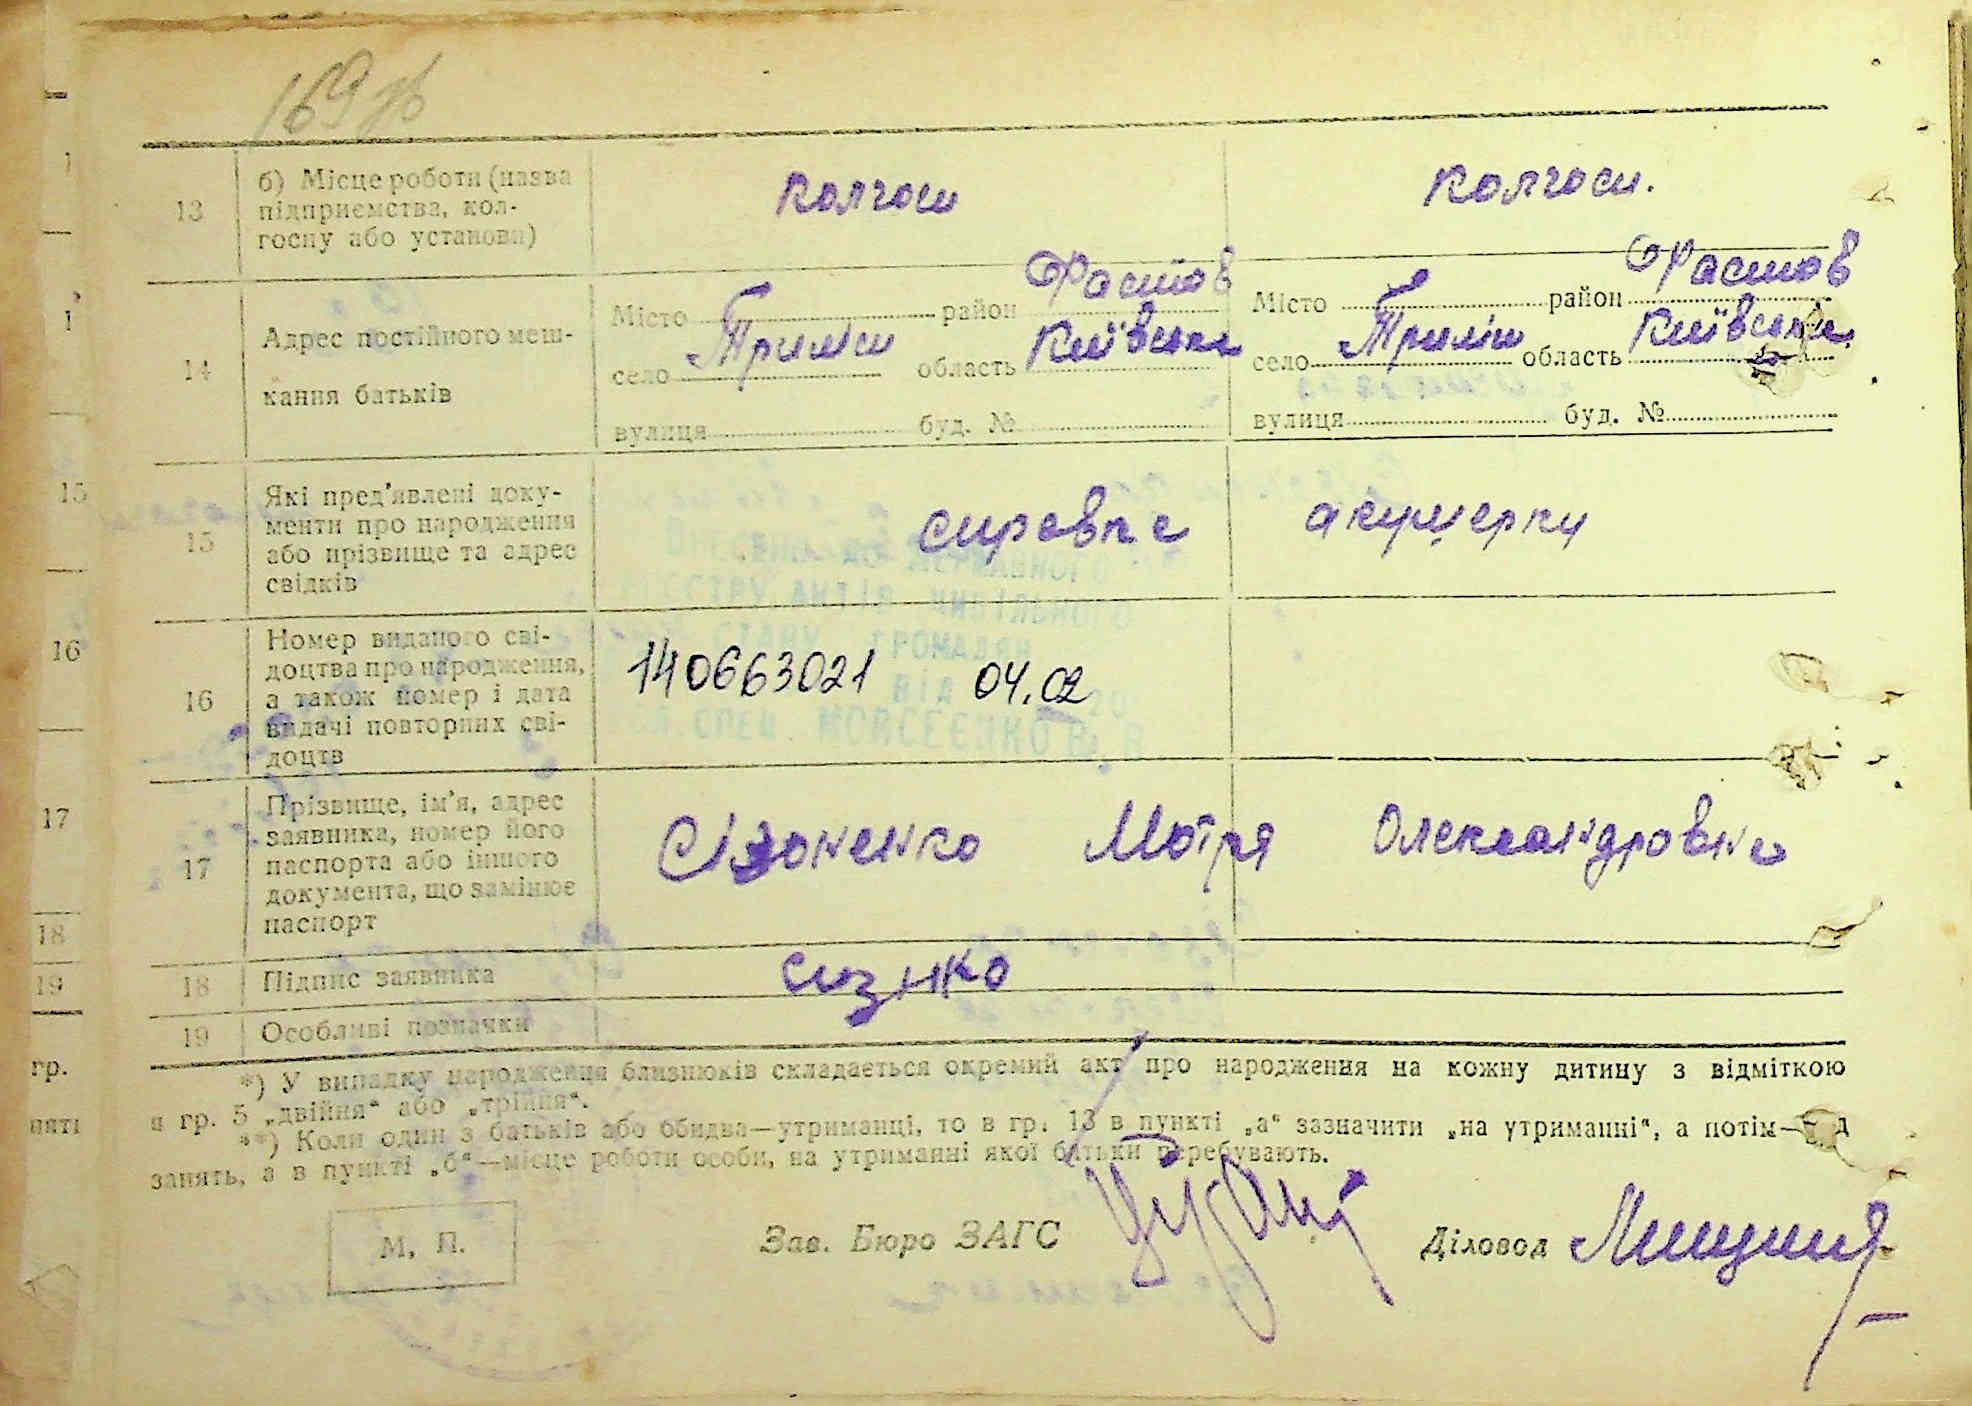 169 зв
13
б) Місце роботи (назва
підприємства, кол-
госпу або установи)
колгосп
колгосп.
14
Адрес постійного меш-
кання батьків
Місто район Фастов
село Триліси область Київська
вулиця буд. №
Місто район Фастов
село Триліси область Київська
вулиця буд. №
15
Які пред'явлені доку-
менти про народження
або прізвище та адрес
свідків
справка акушерки
16
Номер виданого сві-
доцтва про народження,
а також номер і дата
видачі повторних сві-
доцтв
140663021 04.02
17
Прізвище, ім'я, адрес
заявника, номер його
паспорта або іншого
документа, що замінює
паспорт
Сізоненко Мотря Олександровна
18
Підпис заявника
сизнко
19
Особливі позначки
*) У випадку народження близнюків складається окремий акт про народження на кожну дитину з відміткою
в гр. 5 „двійня“ або „трійня“.
**) Коли один з батьків або обидва—утриманці, то в гр. 13 в пункті „а“ зазначити „на утриманні“, а потім—
занять, а в пункті „б“—місце роботи особи, на утриманні якої батьки перебувають.
М. П.
Зав. Бюро ЗАГС
Діловод
15
16
17
18
19
гр.